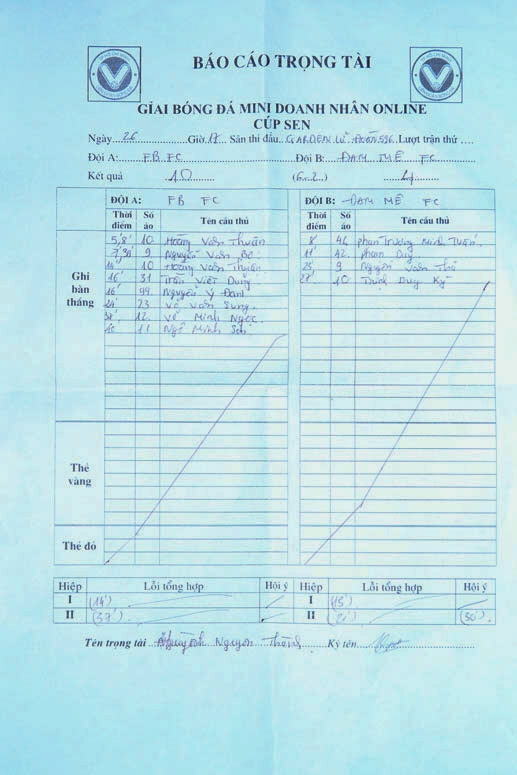 BÁO CÁO TRỌNG TÀI
GIẢI BÓNG ĐÁ MINI DOANH NHÂN ONLINE
CÚP SEN
Ngày 26 Giờ 17 Sân thi đấu GARDEN Lượt trận thứ
Đội A: FB FC Đội B: ĐAM MÊ FC
Kết quả 10 (6-2) 4
ĐỘI A: FB FC ĐỘI B: ĐAM MÊ FC
Thời điểm Số áo Tên cầu thủ Thời điểm Số áo Tên cầu thủ
Ghi bàn thắng
5',8' 10 Hoàng Văn Thuấn 8' 46 phan Trương Minh Tuấn
9 Nguyễn Văn Bé 11' 42 phan Duy
10 Hoàng Văn Thuấn 9 Nguyễn Văn Thủ
16' 31 Trần Viết Dũng 10 Trịnh Duy Kỳ
16' 99 Nguyễn Ý Đam
24' 23 Võ Văn Sung
38' 12 Võ Minh Ngọc
11 Ngô Minh Sơn
Thẻ vàng
Thẻ đỏ
Hiệp Lỗi tổng hợp Hội ý Hiệp Lỗi tổng hợp Hội ý
I (14') I (15')
II (37') II
Tên trọng tài Huỳnh Nguyên Thành Ký tên